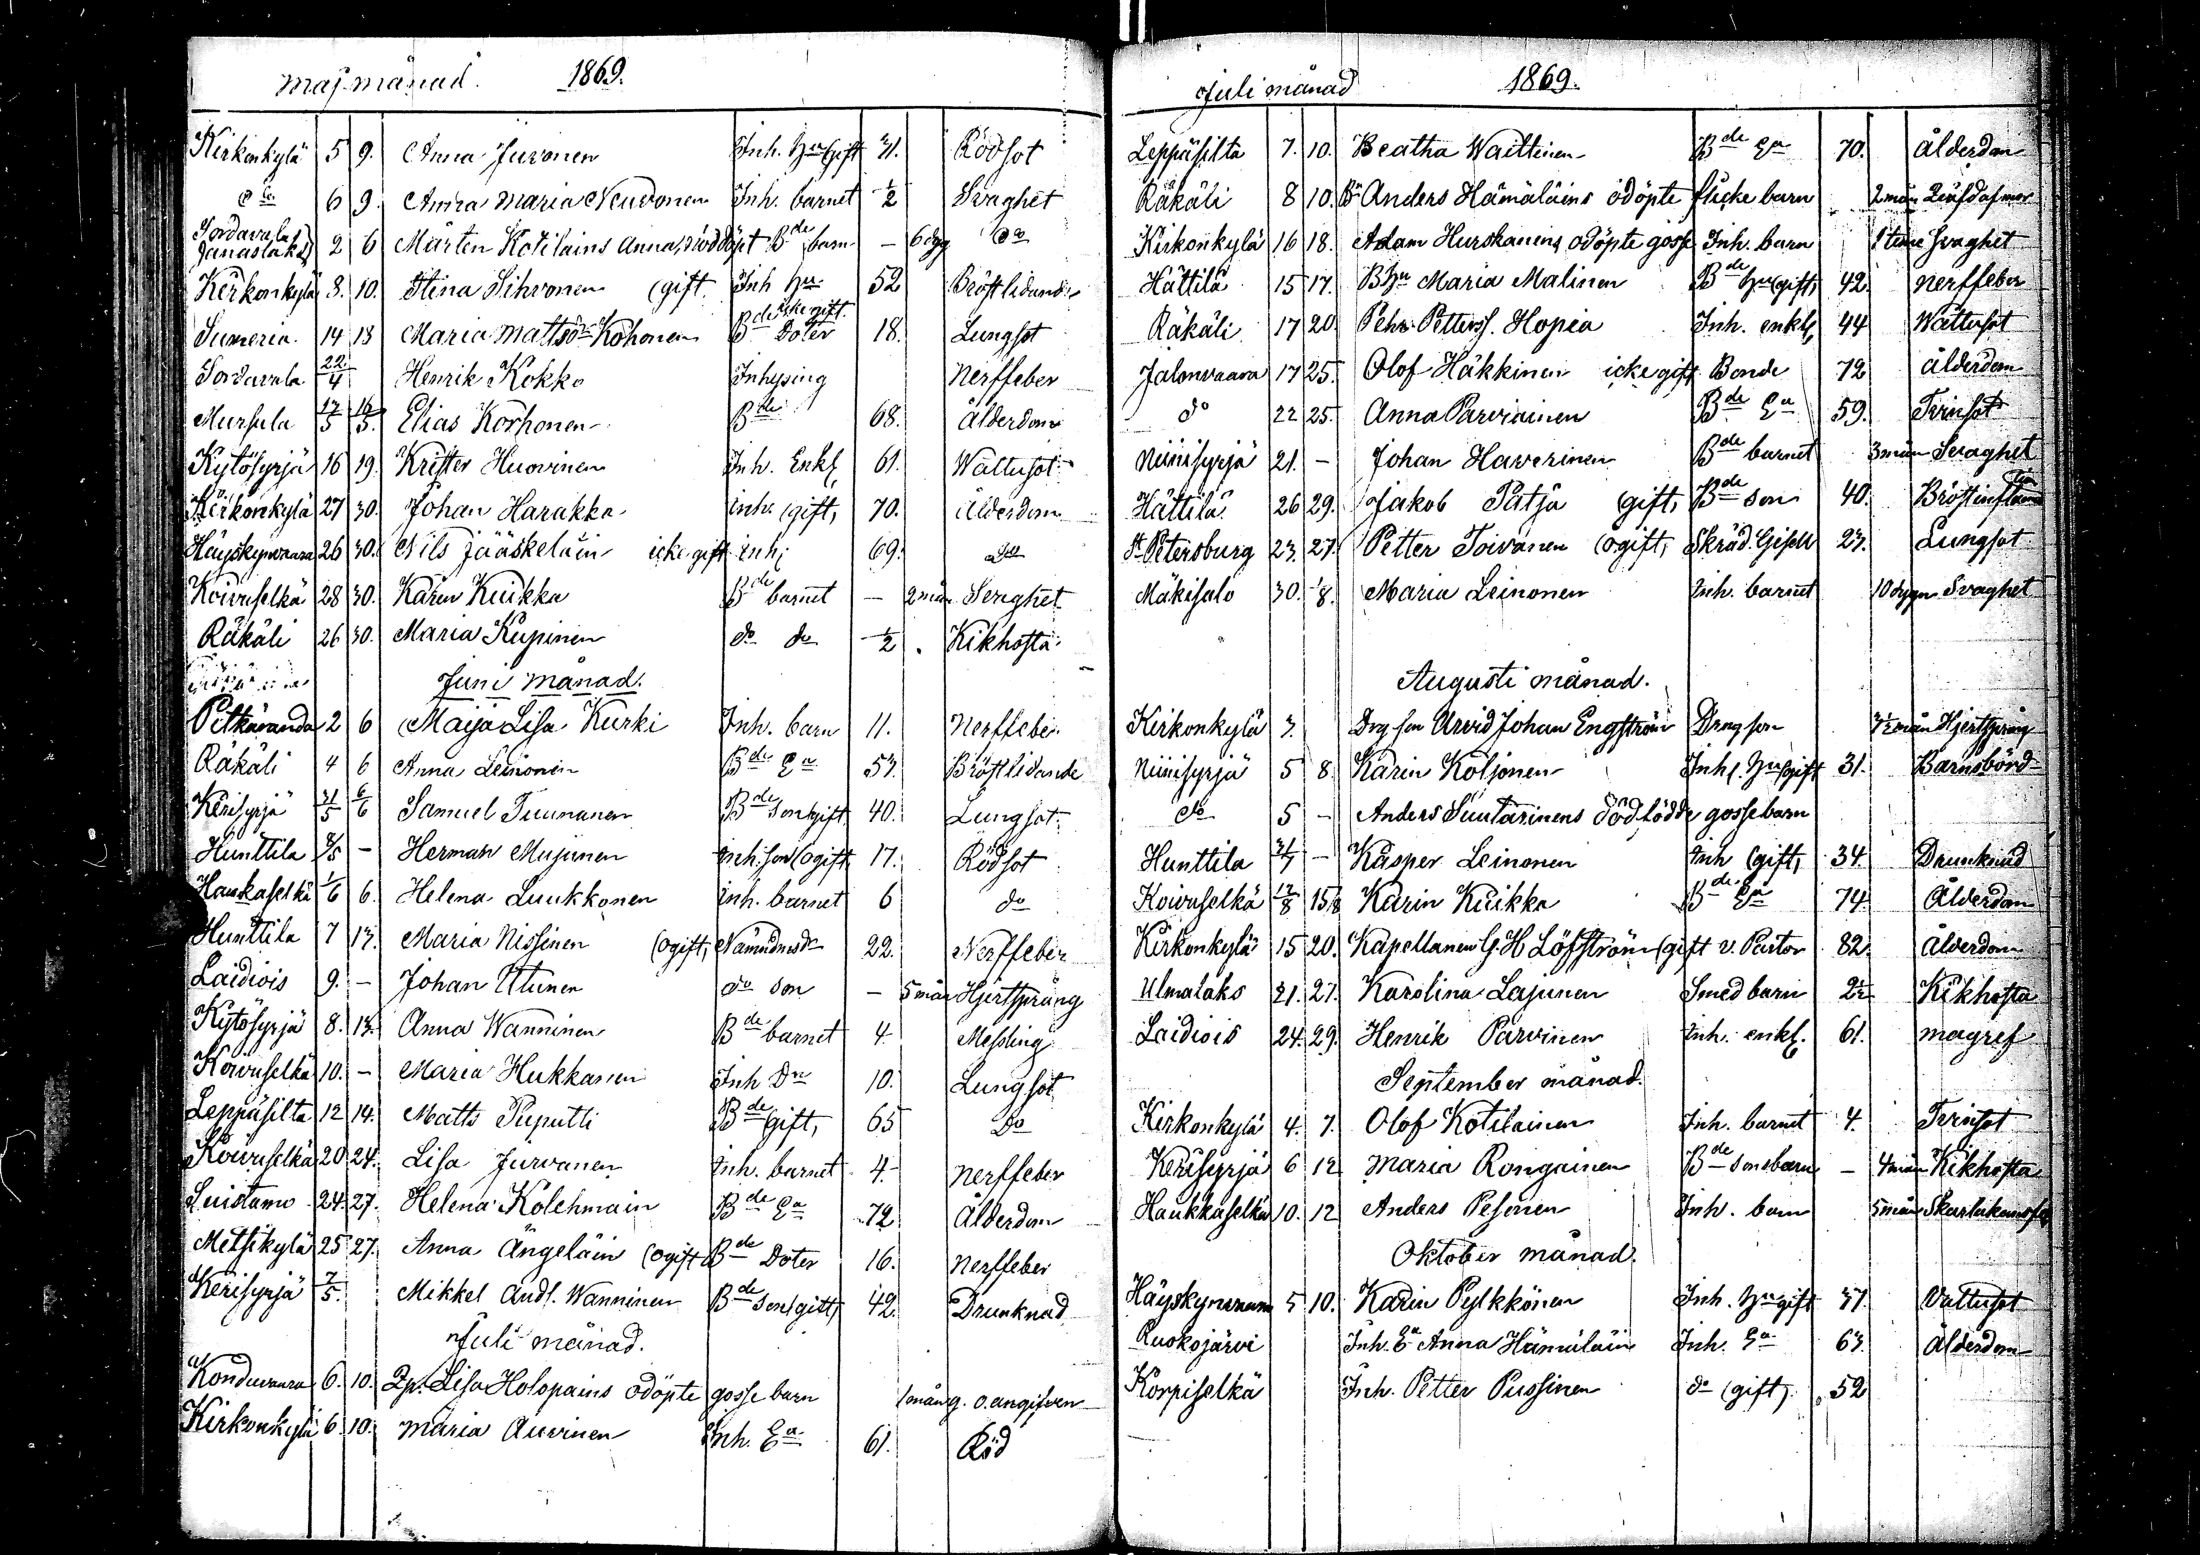 maj månad. 1869.
Kirkonkylä 5 9. Anna Juvonen Inh. Hu (gift 31. Rödsot
do 6 9. Anna Maria Neuvonen Inh. barnet ½ Svaghet
Sordavala Janaslaks 2 6 Mårten Kotilains Anna, nöddöpt Bde barn – 6 dgr do
Kirkonkylä 8. 10. Stina Sihvonen (gift. Inh Hu 52 Bröstlidande
Sumeria 14 18 Maria Mattsdr Kohonen Bde Doter icke gift 18. Lungsot
Sordavala 22/4 Henrik Kokko Inhysing Nerffeber
Mursula 13/5 16/5. Elias Korhonen Bde 68. Ålderdom
Kytösyrjä 16 19. Krister Huovinen Inh. Enkl. 61. Wattusot
Kirkonkylä 27 30. Johan Harakka inh. (gift, 70. Ålderdom
Häyskynvaara 26 30. Nils Jääskeläin icke gift inh; 69. do
Koivuselkä 28 30. Karin Kuikka Bde barnet – 2 mån Svaghet
Räkäli 26 30. Maria Kupinen do do ½ Kikhosta
Juni månad.
Pitkäranda 2 6 Maija Lisa Kurki Inh. barn 11. Nerffeber
Räkäli 4 6 Anna Leinonen Bde Ea 53. Bröstlidande
Kerisyrjä 31/5 6/6 Samuel Tuunanen Bde Son (gift 40. Lungsot
Hunttila /5 – Herman Mujunen inh. son (ogift, 17. Rödsot
Haukaselkä 1/6 6. Helena Luukkonen inh. barnet 6 do
Hunttila 7 13. Maria Nissinen (ogift, Nämndmsdr 22. Nerffeber
Laidiois 9. – Johan Utunen do son – 5 mån Hjertsprång
Kytösyrjä 8. 13. Anna Wanninen Bde barnet 4 Messling
Koivuselkä 10. – Maria Hukkanen Inh Dr 10. Lungsot
Leppäsilta 12 14. Matts Puputti Bde (gift, 65 Do
Koivuselkä 20 24. Lisa Jurvanen Inh. barnet 4. Nerffeber
Suistamo 24. 27. Helena Kolehmain Bde Ea 72 Ålderdom
Metsikylä 25 27. Anna Ängeläin (ogift Bde Doter 16. Nerffeber
Kerisyrjä 7/5. Mikkel Andl. Wanninen Bde Son (gift, 42. Drunknad
Juli månad.
Konduvaara 6. 10. Qp. Lisa Holopains odöpte gosse barn 1 mån g. o. angifven
Kirkonkylä 6. 10. Maria Auvinen Inh. Ea 61. Röd
Juli månad 1869.
Leppäsilta 7. 10. Beatha Waittinen Bde Ea 70. Ålderdom
Räkäli 8 10. Anders Hämäläins odöpte flicke barn 2 mån
Kirkonkylä 16 18. Adam Hurskanens odöpte gosse Inh. barn 1 time Svaghet
Hättilä 15 17. B Hu Maria Malinen Bde Hu (gift, 42. nerffeber
Räkäli 17 20. Pehr Petterss. Hopia Inh. enkl. 44 Wattusot
Jalonvaara 17 25. Olof Häkkinen icke gift Bonde 72 Ålderdom
do 22 25. Anna Parviainen Bde Ea 59. Tvinsot
Niinisyrjä 21. – Johan Haverinen Bde barnet 3 mån Svaghet
Hättilä 26 29. Jakob Pätjä (gift, Bde son 40. Bröstinflamation
St. Petersburg 23. 27. Petter Toivanen (ogift, Skräd. Gesell 23. Lungsot
Mäkisalo 30. 1/8. Maria Leinonen Inh. barnet 10 dygn Svaghet
Augusti månad.
Kirkonkylä 3. Drg son Arvid Johan Engström Drng son 3½ mån Hjertsprång
Niinisyrjä 5 8. Karin Koljonen Inh. Hu (gift 31. Barnsbörd
do 5 – Anders Suutarinens dödfödde gossebarn
Hunttila 31/7 – Kasper Leinonen Inh (gift, 34. Drunknad
Koivuselkä 12/8 15/8 Karin Kuikka Bde Ea 74. Ålderdom
Kirkonkylä 15 20. Kapellanen G. H Löfström (gift v. Pastor 82. Ålderdom
Ulmalaks 21. 27. Karolina Lajunen Smed barn 2½ Kikhosta
Laidiois 24. 29. Henrik Parvinen Inh. enkl. 61. magref
September månad.
Kirkonkylä 4. 7. Olof Kotilainen Inh. barnet 4. Tvinsot
Kerisyrjä 6 12 Maria Rongainen Bde sonsbarn – 4 mån Kikhosta
Haukkaselkä 10. 12 Anders Pesonen Inh. barn 5 mån
Oktober månad.
Häyskynvaara 5 10. Karin Pylkkönen Inh. Hu gift 37. Vattusot
Ruokojärvi Inh. Ea Anna Hämäläin Inh. Ea 63. Ålderdom
Korpiselkä Inh. Petter Pussinen do (gift). 52